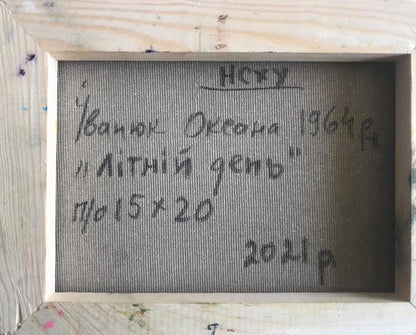 НСХУ
Іванюк Оксана 1964 р.н
"Літній день"
п/о 15 × 20
2021 р